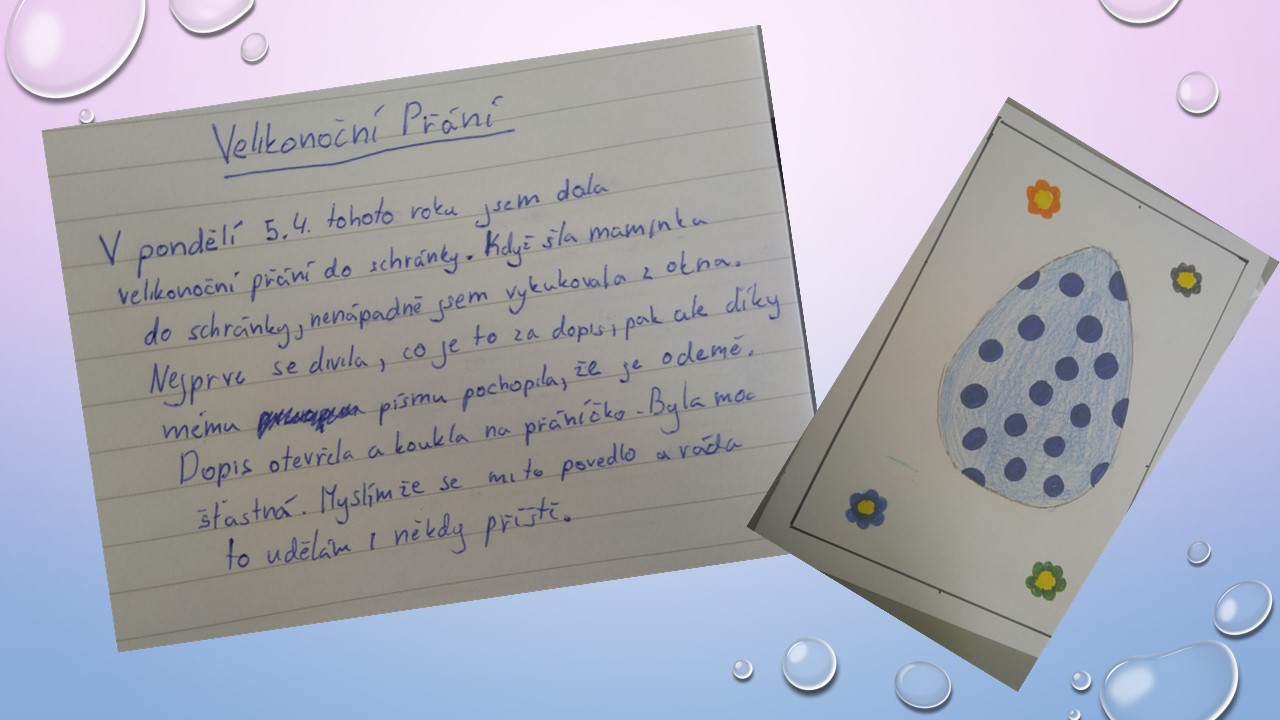 Velikonoční Přání
V pondělí 5.4. tohoto roku jsem dala
velikonoční přání do schránky. Když šla maminka
do schránky, nenápadně jsem vykukovala z okna.
Nejprve se divila, co je to za dopis, pak ale díky
mému písmu pochopila, že je odemě.
Dopis otevřela a koukla na přáníčko. Byla moc
šťastná. Myslím že se mi to povedlo a ráda
to udělám i někdy příště.